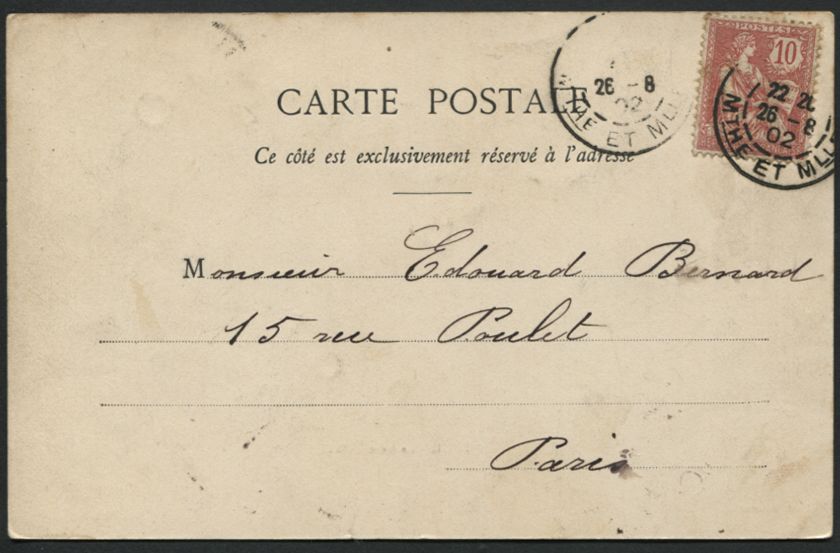 CARTE POSTALE
Ce côté est exclusivement réservé à l'adresse
POSTES
10
26 - 8
02
MTHE ET MLLE
22 2
26 - 8
02
MTHE ET MLLE
Monsieur Edouard Bernard
15 rue Poulet
Paris